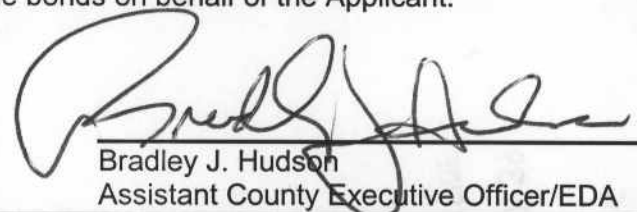 e bonds on behalf of the Applicant.
Bradley J. Hudson
Bradley J. Hudson
Assistant County Executive Officer/EDA